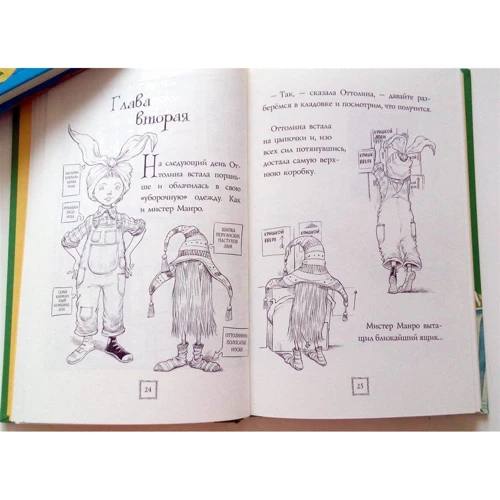 Глава
вторая
На следующий день От-
толина встала порань-
ше и облачилась в свою
“уборочную” одежду. Как
и мистер Манро.
ШАПКА
ПЕРУАНСКИХ
ПАСТУХОВ
ЛАМ
ОТТОЛИНИНЫ
ПОЛОСАТЫЕ
НОСКИ
24
— Так, — сказала Оттолина, — давайте раз-
беремся в кладовке и посмотрим, что получится.
Оттолина встала
на цыпочки и, изо
всех сил потянувшись,
достала самую верх-
нюю коробку.
КРЫШКОЙ
ВВЕРХ
КРЫШКОЙ
ВВЕРХ
Мистер Манро выта-
щил ближайший ящик...
25